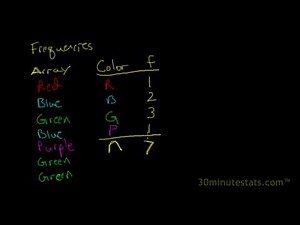 Frequencies
Array Color f
Red R 1
Blue B 2
Green G 3
Blue P 1
Purple n 7
Green
Green
30minutestats.com™